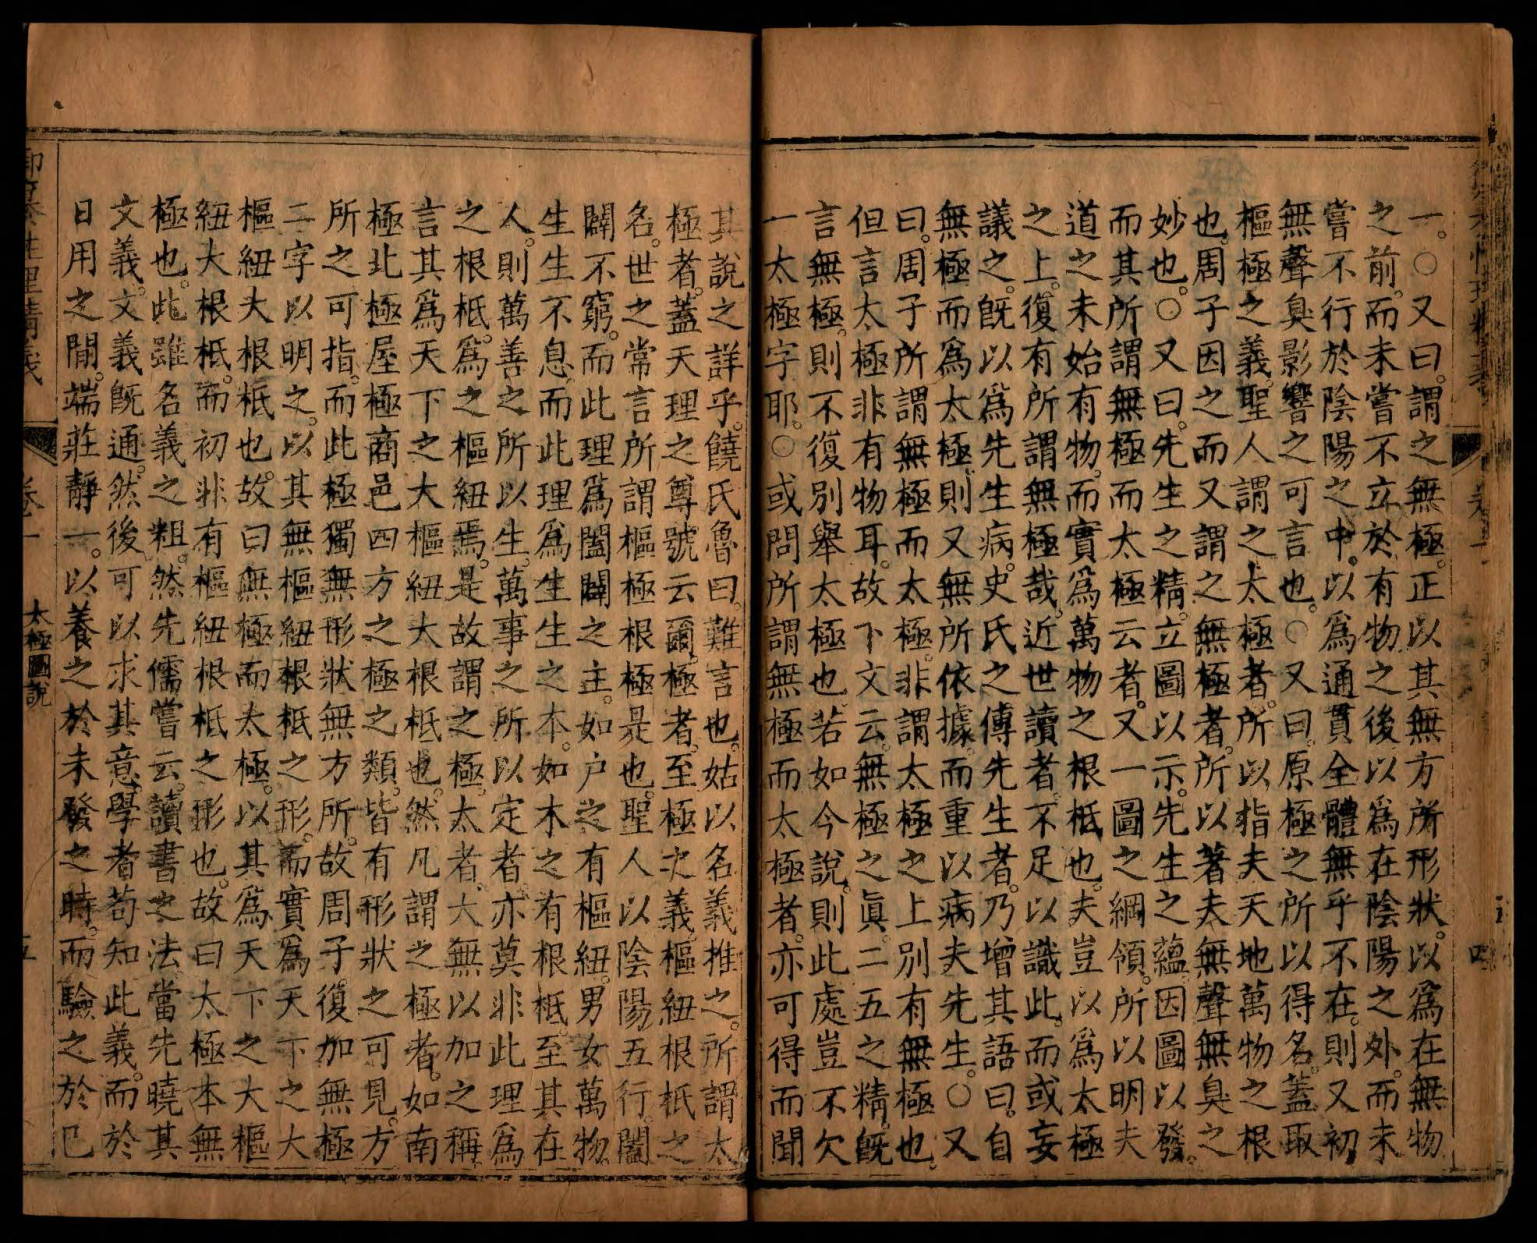 一。○又曰。謂之無極。正以其無方所形狀。以爲在無物
之前。而未嘗不立於有物之後。以爲在陰陽之外。而未
嘗不行於陰陽之中。以爲通貫全體無乎不在。則又初
無聲臭影響之可言也。○又曰。原極之所以得名。蓋取
樞極之義。聖人謂之太極者。所以指夫天地萬物之根
也。周子因之而又謂之無極者。所以著夫無聲無臭之
妙也。○又曰。先生之精。立圖以示。先生之蘊。因圖以發。
而其所謂無極而太極云者。又一圖之綱領。所以明夫
道之未始有物。而實爲萬物之根柢也。夫豈以爲太極
之上。復有所謂無極哉。近世讀者。不足以識此。而或妄
議之。旣以爲先生病。史氏之傳先生者。乃增其語曰。自
無極而爲太極。則又無所依據。而重以病夫先生。○又
曰。周子所謂無極而太極。非謂太極之上別有無極也。
但言太極非有物耳。故下文云。無極之眞。二五之精。旣
言無極。則不復別舉太極也。若如今說。則此處豈不欠
一太極字耶。○或問所謂無極而太極者。亦可得而聞
其說之詳乎。饒氏魯曰。難言也。姑以名義推之。所謂太
極者。蓋天理之尊號云爾。極者。至極之義。樞紐根柢之
名。世之常言所謂樞極根極是也。聖人以陰陽五行。闔
闢不窮。而此理爲闔闢之主。如户之有樞紐。男女萬物
生生不息。而此理爲生生之本。如木之有根柢。至其在
人。則萬善之所以生。萬事之所以定者。亦莫非此理爲
之根柢。爲之樞紐焉。是故謂之極。太者。大無以加之稱
言其爲天下之大樞紐大根柢也。然凡謂之極者。如南
極北極屋極商邑四方之極之類。皆有形狀之可見。方
所之可指。而此極獨無形狀無方所。故周子復加無極
二字以明之。以其無樞紐根柢之形。而實爲天下之大
樞紐大根柢也。故曰無極而太極。以其爲天下之大樞
紐大根柢。而初非有樞紐根柢之形也。故曰太極本無
極也。此雖名義之粗。然先儒嘗云。讀書之法。當先曉其
文義。文義旣通。然後可以求其意。學者苟知此義。而於
日用之間。端莊靜一。以養之於未發之時。而驗之於已
御纂性理精義
卷一
太極圖說
五